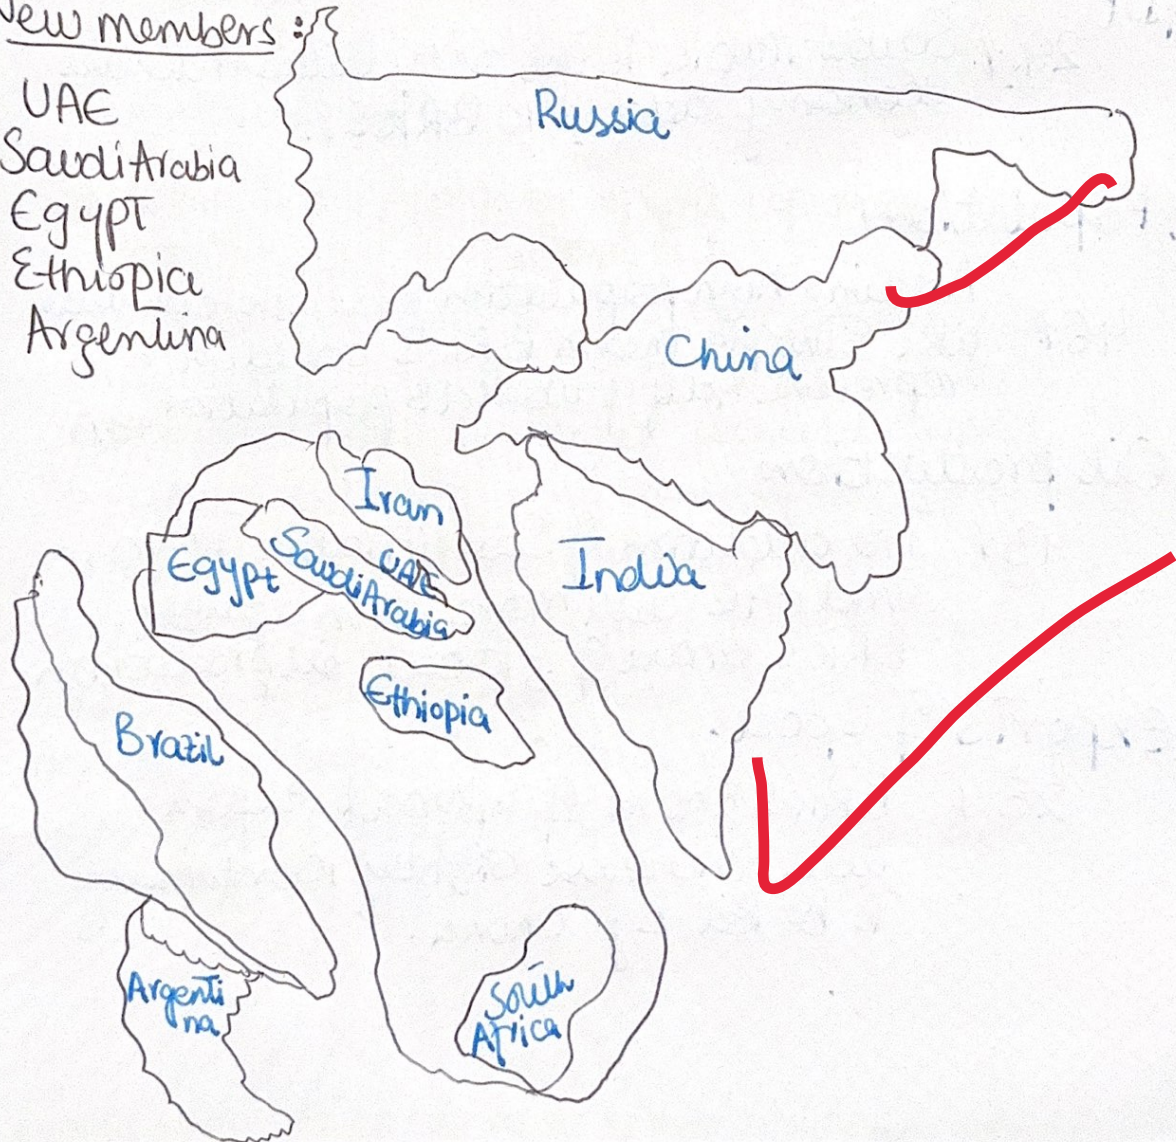 New members :
UAE
Saudi Arabia
Egypt
Ethiopia
Argentina
Russia
China
Iran
UAE
Saudi Arabia
Egypt
India
Ethiopia
Brazil
Argenti
na
South
Africa